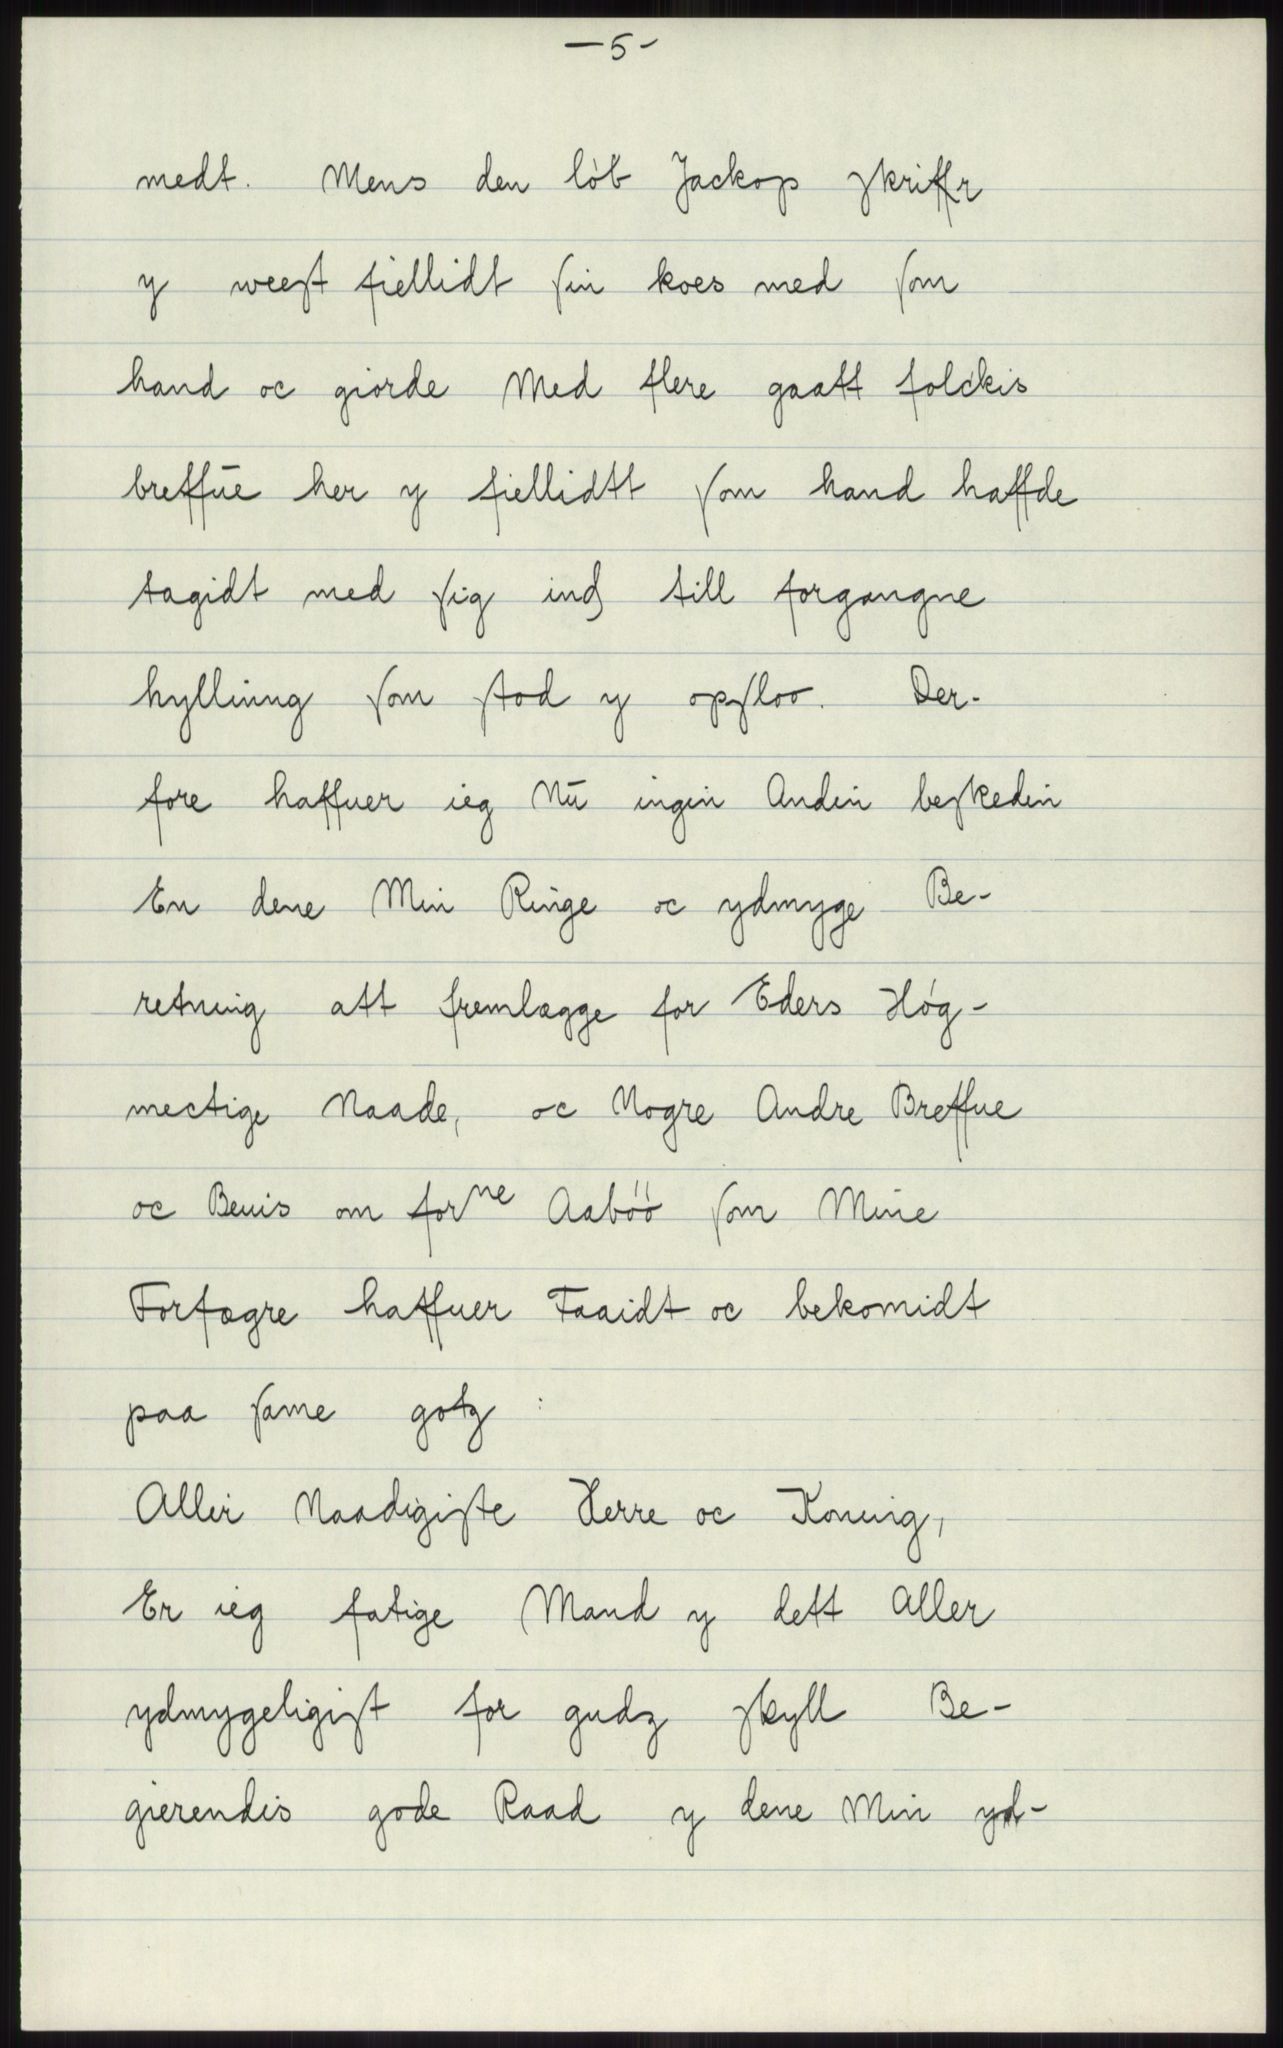 — 5 -
medt. Mens den löb Jackop skriffr
y weest fiellidt sin koes med som
hand oc giorde Med flere gaatt folckis
breffue her y fiellidtt som hand haffde
tagidt med sig ind till forgangne
hylling som stod y opsloo. Der-
fore haffuer ieg Nu ingin Andin beskedin
En dene Min Ringe oc ydmyge Be-
retning att fremlægge for Eders Høg-
mectige Naade, oc Nogre Andre Breffue
oc Beuis om forne Aaböö som Mine
Forfægre haffuer Faaidt oc bekomidt
paa same gotz :
Allir Naadigiste Herre oc Koning,
Er ieg fatige Mand y dett Aller
ydmygeligist for gudz skyll Be-
gierendis gode Raad y dene Min yd-